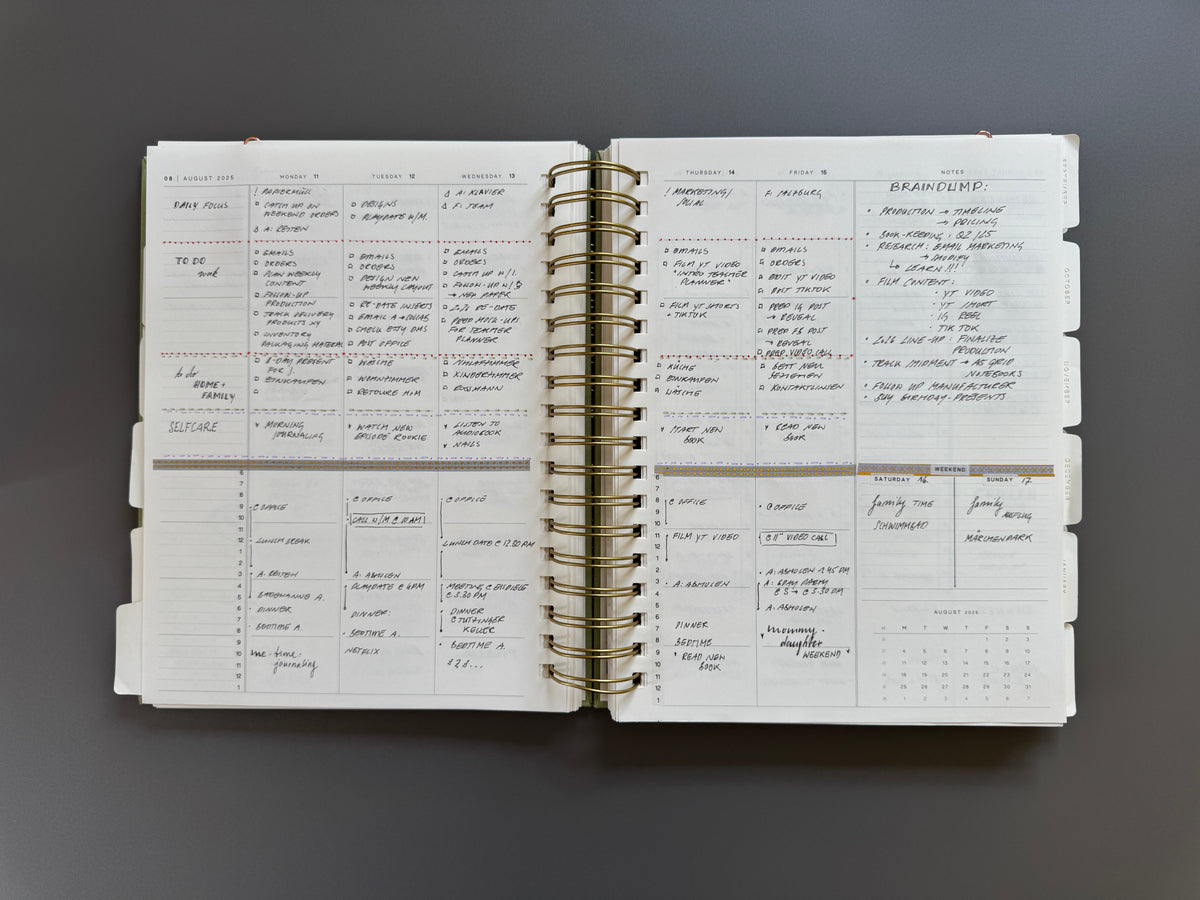 08 | AUGUST 2025
MONDAY 11
TUESDAY 12
WEDNESDAY 13
DAILY FOCUS
! PAPIERMÜLL
CATCH UP ON
WEEKEND ORDERS
A: REITEN
DESIGNS
PLAYDATE W/M.
A: KLAVIER
F: TEAM
TO DO
work
EMAILS
ORDERS
PLAN WEEKLY
CONTENT
FOLLOW-UP
PRODUCTION
TRACK DELIVERY
PRODUCTS NY
INVENTORY
PACKAGING MATERIAL
EMAILS
ORDERS
DESIGN NEW
WEEKLY LAYOUT
RE-DATE INSERTS
EMAIL A → COLLAB
CHECK ETSY DMS
POST OFFICE
EMAILS
ORDERS
CATCH UP W/I.
FOLLOW-UP W/S
→ NEW PAPER
2026 RE-DATE
PREP MOCK-UPS
FOR TEACHER
PLANNER
to do
HOME +
FAMILY
B-DAY PRESENT
FOR J
EINKAUFEN
WÄSCHE
WOHNZIMMER
RETOURE H+M
SCHLAFZIMMER
KINDERZIMMER
ROSSMANN
SELFCARE
MORNING
JOURNALING
WATCH NEW
EPISODE ROOKIE
LISTEN TO
AUDIOBOOK
NAILS
6
7
8
9
10
11
12
1
2
3
4
5
6
7
8
9
10
11
12
1
OFFICE
LUNCH BREAK
A: REITEN
BADEWANNE A.
DINNER
BEDTIME A.
me · time ·
journaling
OFFICE
CALL W/M @ 10 AM
A: ABHOLEN
PLAYDATE @ 4PM
DINNER:
BEDTIME A.
NETFLIX
OFFICE
LUNCH DATE @ 12.30 PM
MEETING @
@ 3.30 PM
DINNER
@ TUTZINGER
KELLER
BEDTIME A.
THURSDAY 14
FRIDAY 15
NOTES
! MARKETING/
SOCIAL
F: SALZBURG
EMAILS
FILM YT VIDEO
"INTRO TEACHER
PLANNER"
FILM YT SHORTS
+ TIKTOK
EMAILS
ORDERS
EDIT YT VIDEO
POST TIKTOK
PREP IG POST
→ REVEAL
PREP FB POST
→ REVEAL
PREP. VIDEO CALL
KÜCHE
EINKAUFEN
WÄSCHE
BETT NEU
BEZIEHEN
KONTAKTLINSEN
START NEW
BOOK
READ NEW
BOOK
6
7
8
9
10
11
12
1
2
3
4
5
6
7
8
9
10
11
12
1
OFFICE
FILM YT VIDEO
A: ABHOLEN
DINNER
BEDTIME
READ NEW
BOOK
OFFICE
@ 11 VIDEO CALL
A: ABHOLEN 1.45 PM
A: BDAY PARTY
@ S → @ 3.30 PM
A: ABHOLEN
mommy ·
daughter
WEEKEND
BRAINDUMP:
PRODUCTION → TIMELINE
→ PRICING
BOOK-KEEPING: Q2/25
RESEARCH: EMAIL MARKETING
→ SHOPIFY
LEARN!!!
FILM CONTENT:
YT VIDEO
YT SHORT
IG REEL
TIK TOK
2026 LINE-UP: FINALIZE
PRODUCTION
TRACK SHIPMENT → A5 GRID
NOTEBOOKS
FOLLOW UP MANUFACTURER
BUY BIRTHDAY-PRESENTS
WEEKEND
SATURDAY 16.
SUNDAY 17.
family TIME
SCHWIMMBAD
family
AUSFLUG
MÄRCHENPARK
AUGUST 2025
M T W T F S S
1 2 3
4 5 6 7 8 9 10
11 12 13 14 15 16 17
18 19 20 21 22 23 24
25 26 27 28 29 30 31
1 2 3 4 5 6 7
OCTOBER
NOVEMBER
DECEMBER